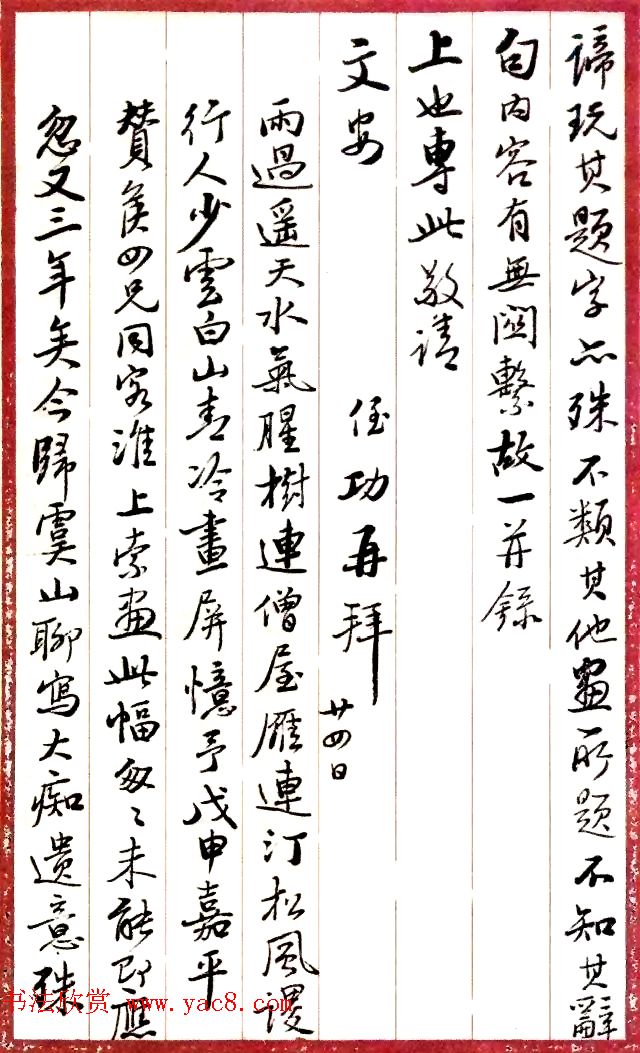 諦玩其題字亦殊不類其他畫所題不知其辭
句内容有無關繫故一并錄
上也專此敬請
文安
侄功再拜
廿四日
雨過遥天水氣腥樹連僧屋雁連汀松風謖
行人少雲白山青冷畫屏憶予戊申嘉平
贊侯四兄同客淮上索畫此幅匆〻未能即應
忽又三年矣今歸虞山聊寫大痴遺意殊
书法欣赏 www.yac8.com